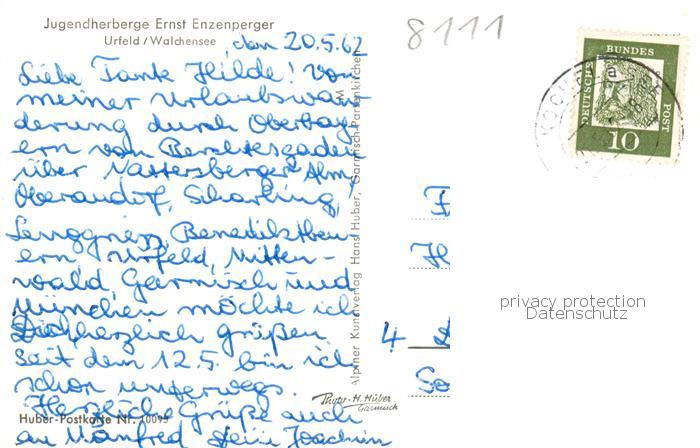 Jugendherberge Ernst Enzenperger
Urfeld / Walchensee
den 20.5.62
Liebe Tante Hilde! Von
meiner Urlaubswan-
derung durch Oberbay-
ern von Berchtesgaden
über Nattersberger Alm,
Oberaudorf, Scharling,
Lenggries, Benediktbeu-
ern Urfeld, Mitten-
wald, Garmisch und
München möchte ich
Dich herzlich grüßen.
Seit dem 12.5. bin ich
schon unterwegs.
Herzliche Grüße auch
an Manfred Dein Joachim
Huber-Postkarte Nr. 10095
Alpiner Kunstverlag Hans Huber, Garmisch-Partenkirchen
Photo-H. Huber
Garmisch
8111
DEUTSCHE BUNDES POST
10
KOCH
F
H
4
So
privacy protection
Datenschutz